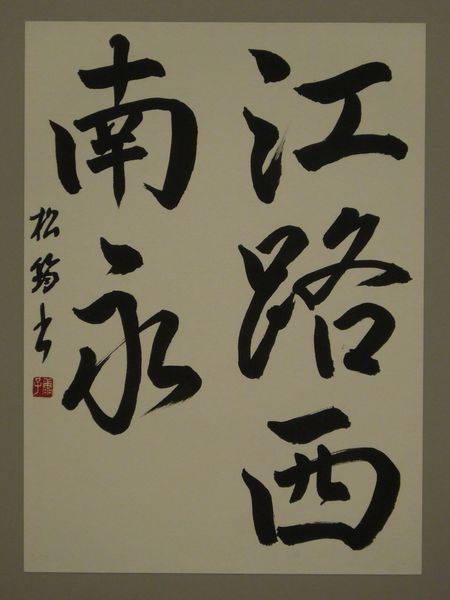 江路西
南永
松筠书